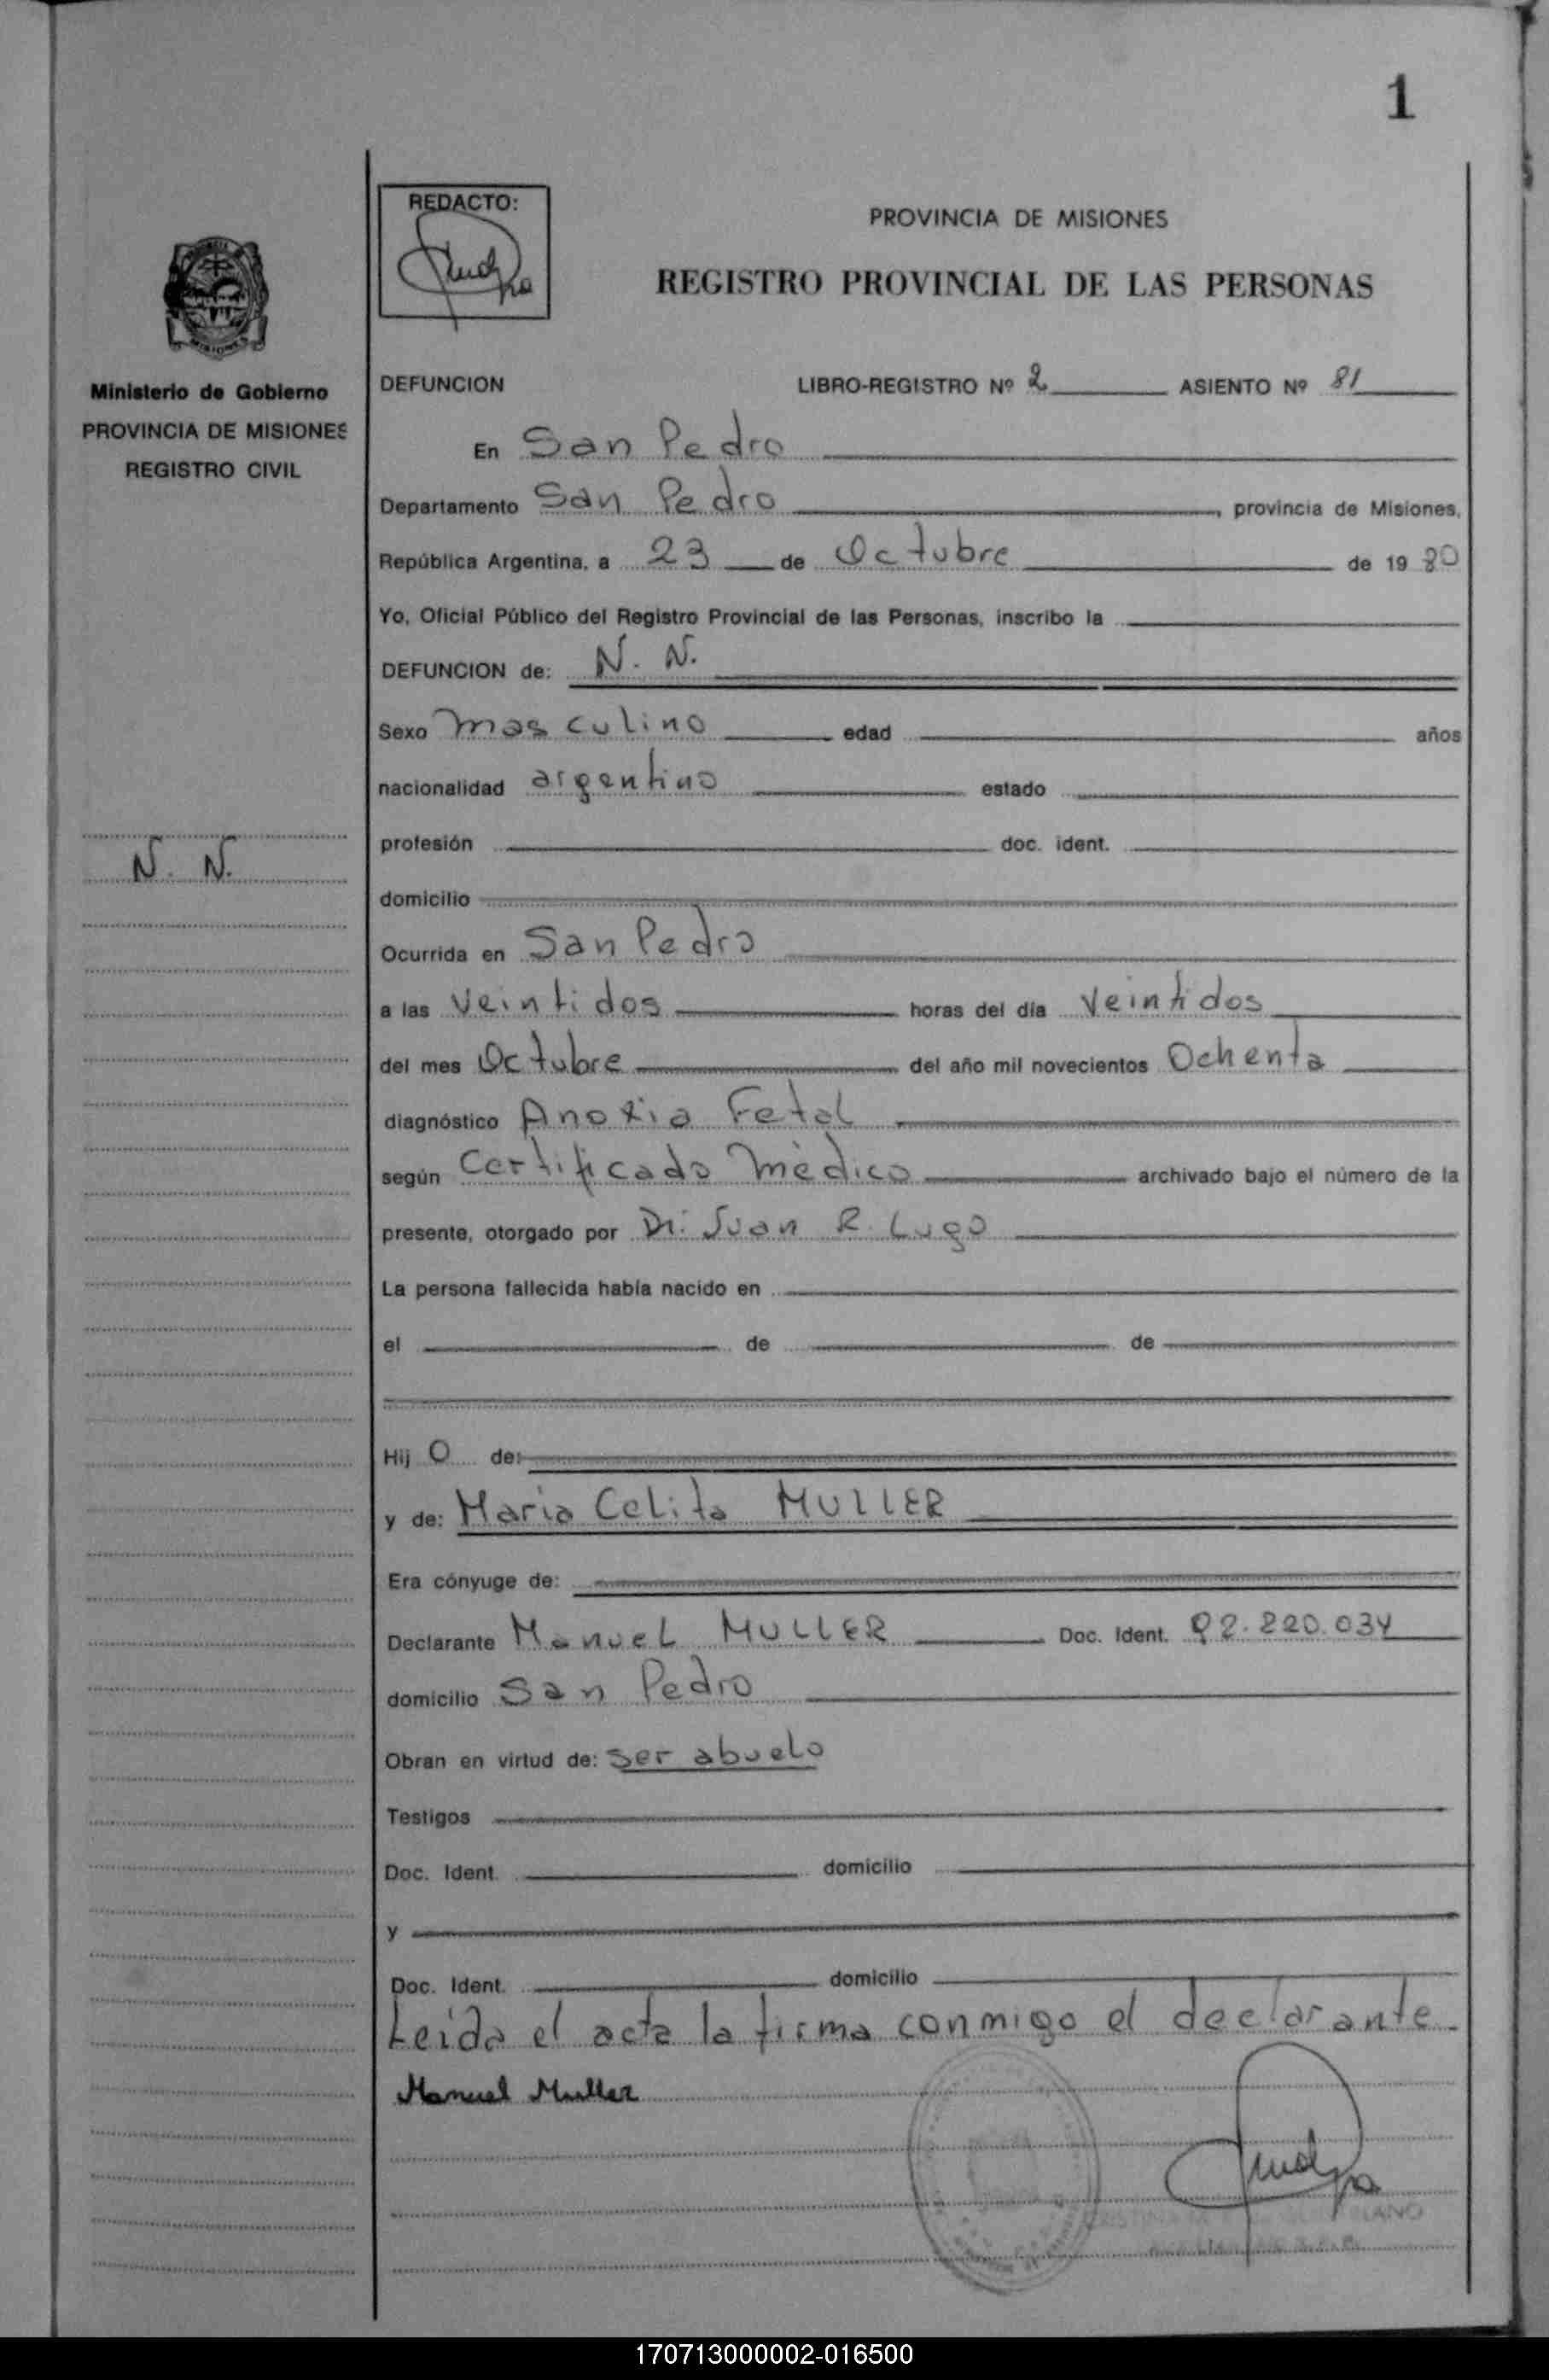 1
REDACTO:
PROVINCIA DE MISIONES
REGISTRO PROVINCIAL DE LAS PERSONAS
MISIONES
Ministerio de Gobierno
PROVINCIA DE MISIONES
REGISTRO CIVIL
DEFUNCION LIBRO-REGISTRO Nº 2 ASIENTO Nº 81
En San Pedro
Departamento San Pedro, provincia de Misiones,
República Argentina, a 23 de Octubre de 1980
Yo, Oficial Público del Registro Provincial de las Personas, inscribo la
DEFUNCION de: N. N.
Sexo masculino edad años
nacionalidad argentino estado
profesión doc. ident.
N. N.
domicilio
Ocurrida en San Pedro
a las Veintidos horas del día Veintidos
del mes Octubre del año mil novecientos Ochenta
diagnóstico Anoxia Fetal
según Certificado Mèdico archivado bajo el número de la
presente, otorgado por Dr. Juan R. Lugo
La persona fallecida había nacido en
el de de
Hij O de:
y de: Maria Celita MULLER
Era cónyuge de:
Declarante Manuel MULLER Doc. Ident. 92.220.034
domicilio San Pedro
Obran en virtud de: Ser abuelo
Testigos
Doc. Ident. domicilio
y
Doc. Ident. domicilio
Leida el acta la firma conmigo el declarante.
Manuel Muller
170713000002-016500